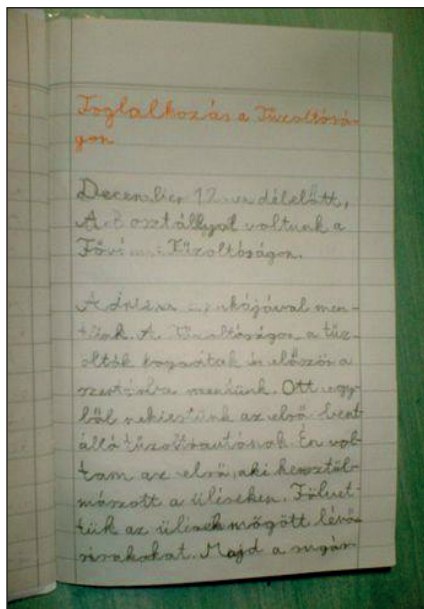 Foglalkozás a Tűzoltósá-
gon
December 12-en délelőtt,
A 3 osztállyal voltunk a
Tűzoltóságon.
men-
tünk. A Tűzoltóságon a tűz-
oltók és először a
mentünk. Ott egy-
ből nekiestünk az első bent
álló tűzoltóautónak. Én vol-
tam az első, aki keresztül-
mászott a üléseken. Fölvet-
tük az ülések mögött lévő
sisakokat. Majd a sugár-